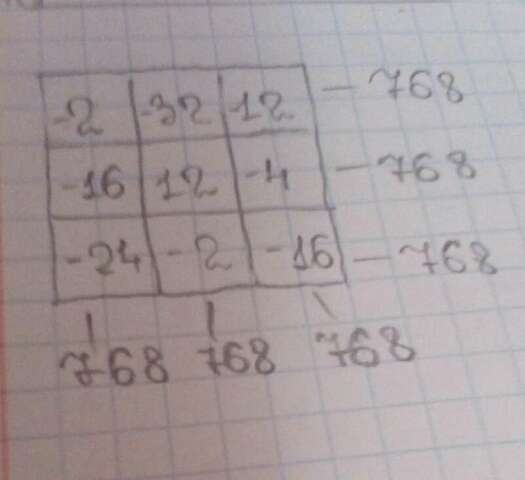 -2 -32 12 - 768
-16 12 -4 - 768
-24 -2 -16 - 768
768 768 768